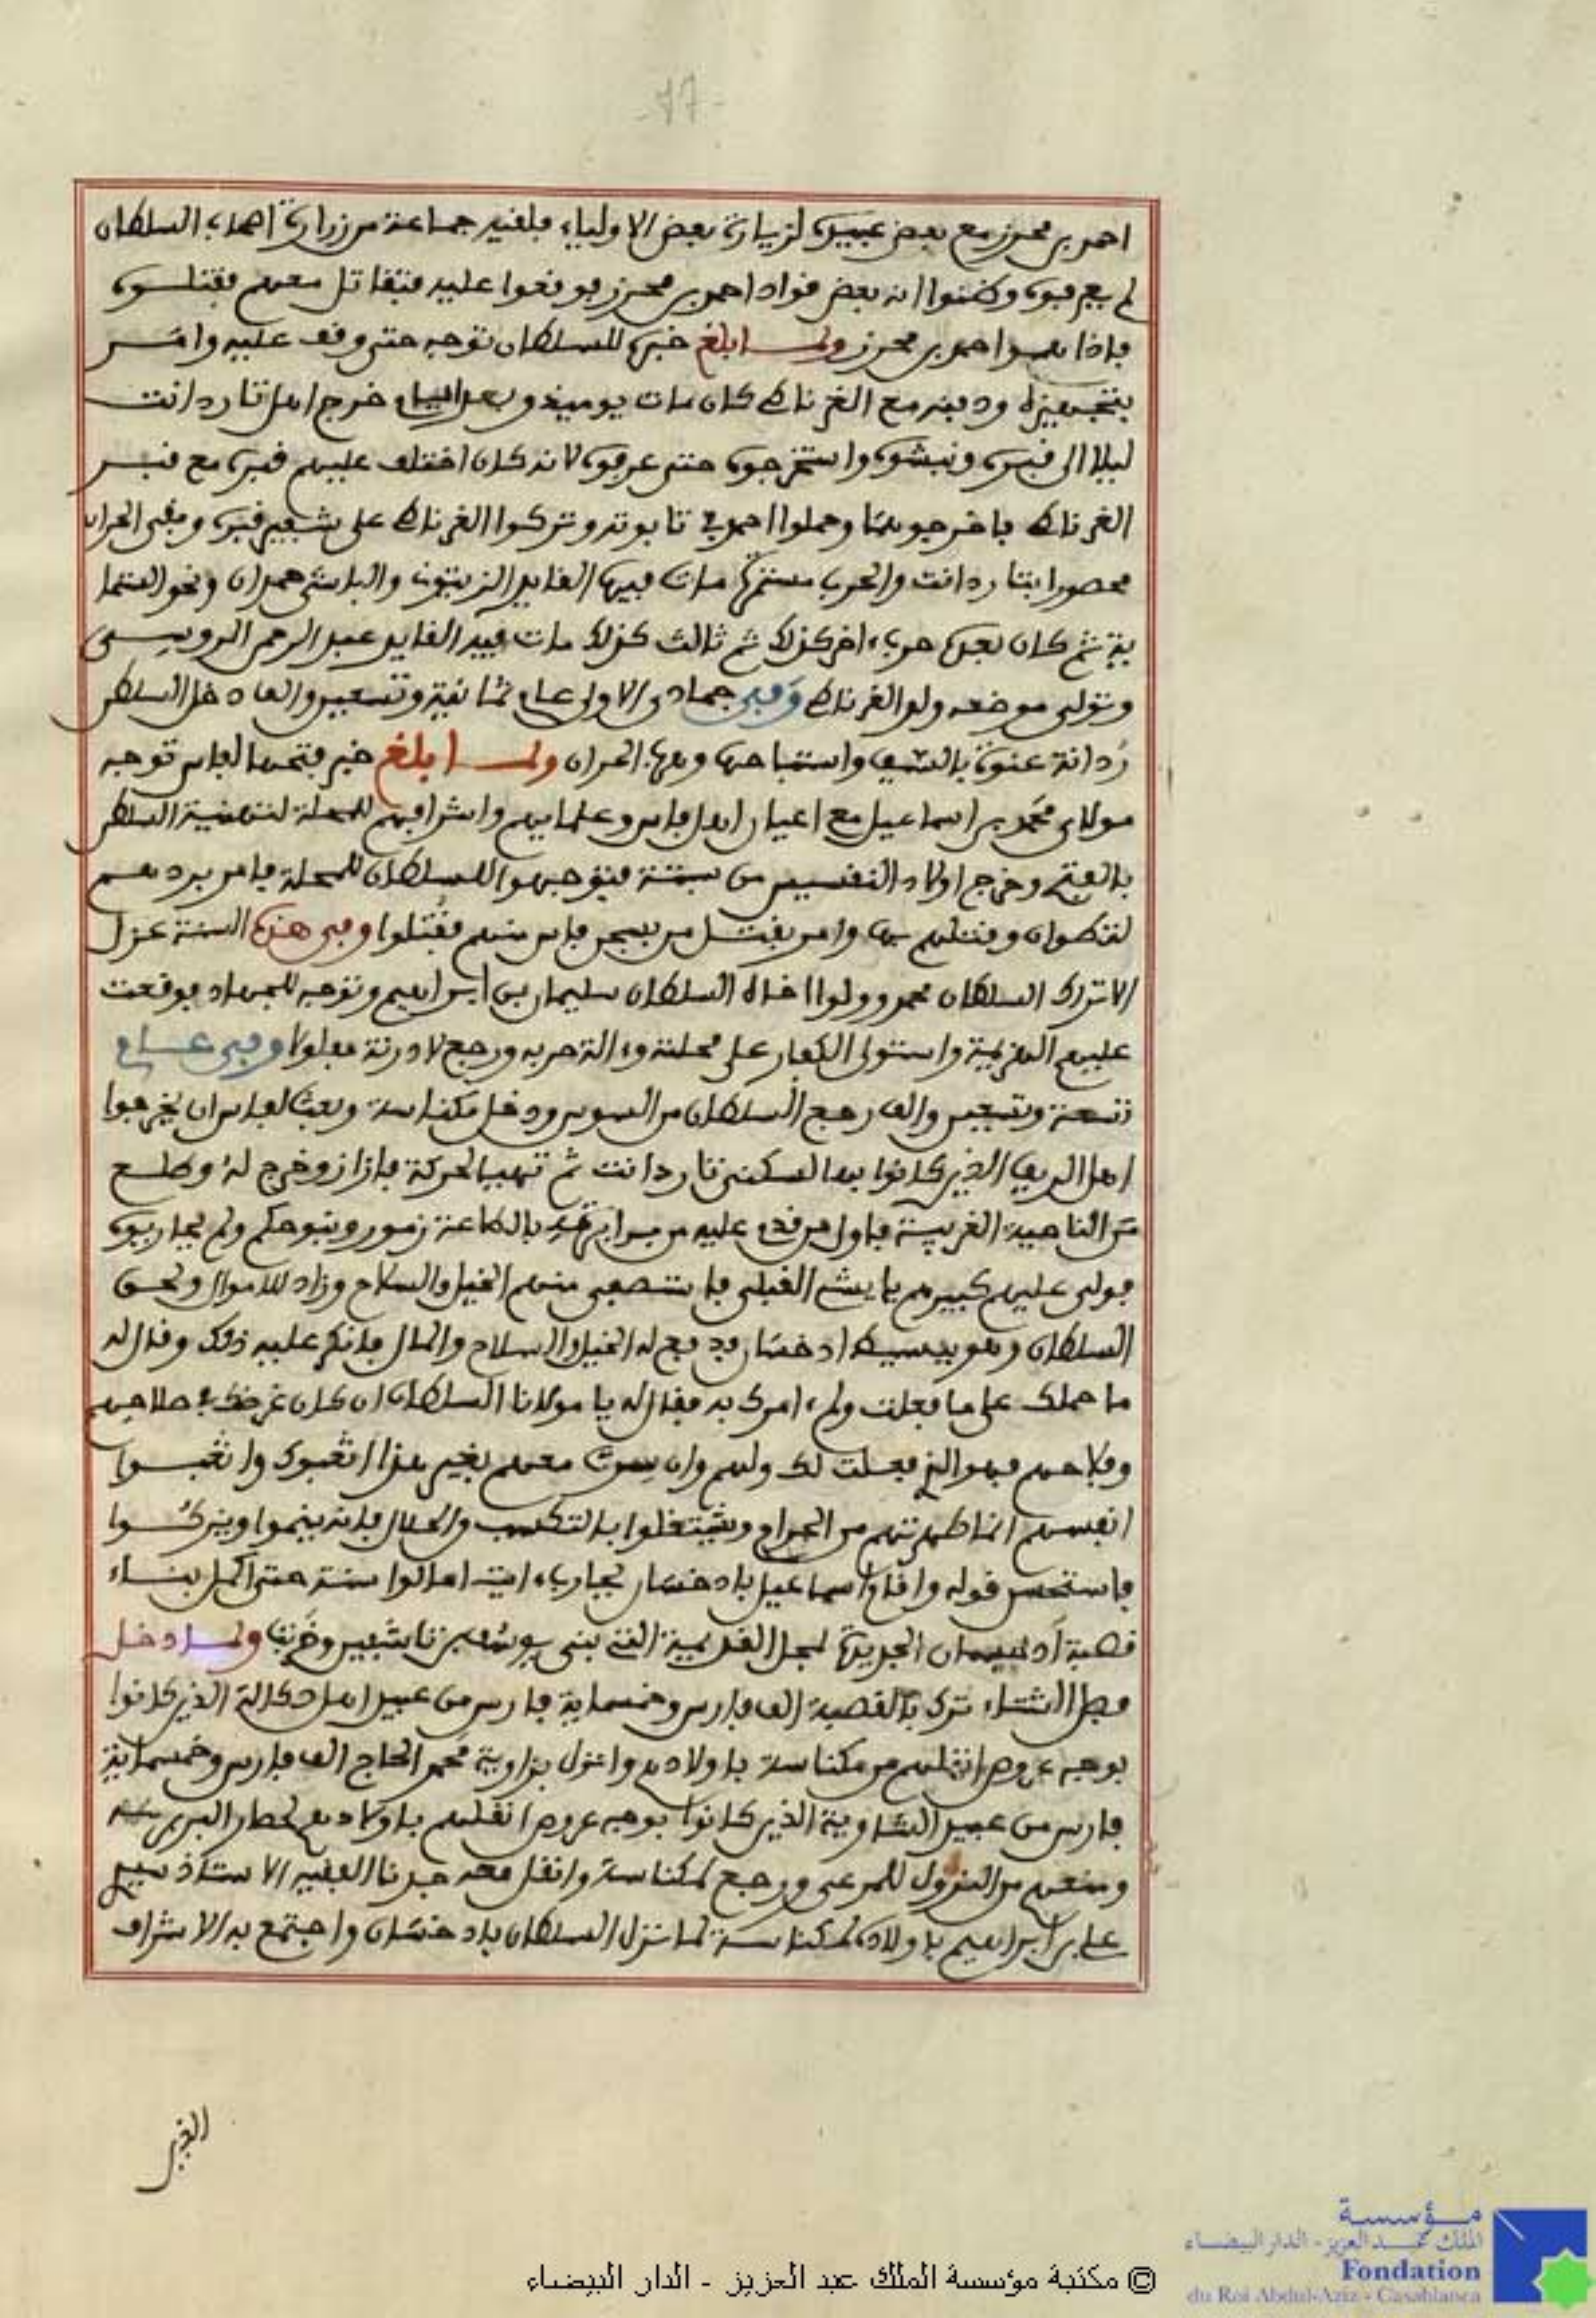 -17-
احمد بن محرز مع بعض عبيده لزيارة بعض الاولياء فلقيه جماعة من زرارة اصحاب السلطان
لم يعرفوه وظنوا انه بعض قواد احمد بن محرز فوقعوا عليه فتقاتل معهم فقتلوه
فاذا هو احمد بن محرز ولما بلغ خبره للسلطان توجه حتى وقف عليه وامر
بتجهيزه ودفنه مع الغرناطي كان مات يوميذ وبعد ايام خرج اهل تارودانت
ليلا الى قبره ونبشوه واستخرجوه حتى عرفوه لانه كان اختلف عليهم قبره مع قبر
الغرناطي فاخرجوهما وحملوا احمد في تابوته وتركوا الغرناطي على شفير قبره وبقي الحران
محصورا بتارودانت والحرب مستمرة مات فيها القايد الزيتوني والباشا حمدان ونحو الستما
ية ثم كان بعدها حرب ءاخر كذلك ثم ثالث كذلك مات فيه القايد عبد الرحمن الروسي
وتولى موضعه ولد الغرناطي وفي جمادى الاولى عام ثمانية وتسعين والف دخل السلطن
ردانة عنوة بالسيف واستباحها وبها الحران ولما بلغ خبر فتحها لفاس توجه
مولاي محمد بن اسماعيل مع اعيان اهل فاس وعلمايهم واشرافهم للمحلة لتهنية السلطن
بالفتح وخرج اولاد النقسيس من سبتة فتوجهوا للسلطان للمحلة فامر بردهم
لتطوان وقتلهم بها وامر بقتل من بسجن فاس منهم فقتلوا وفي هذه السنة عزل
الاتراك السلطان محمد وولوا اخاه السلطان سليمان بن ابراهيم وتوجه للجهاد فوقعت
عليهم الهزيمة واستولى الكفار على محلته وءالة حربه ورجع لادرنة مفلولا وفي عام
تسعة وتسعين والف رجع السلطان من السوس ودخل مكناسة وبعث لفاس ان يخرجوا
اهل الريف الذين كانوا بها لسكنى تارودانت ثم تهيا لحركة فازاز وخرج له وطلع
من الناحية الغربية فاول من قدم عليه من برابرته بالطاعة زمور وبنو حكم ولم يحاربوه
فولى عليهم كبيرهم با يشي القبلي فاستصفى منهم الخيل والسلاح وزاد للاموال ولحق
السلطان وهو ببسيط ادخسان فدفع له الخيل والسلاح والمال فانكر عليه ذلك وقال له
ما حملك على ما فعلت ولم ءامرك به فقال له يا مولانا السلطان ان كان غرضك في صلاحهم
وفلاحهم فهو الذي فعلت لك ولهم وان سرت معهم بغير هذا اتعبوك واتعبوا
انفسهم انما طهرتهم من الحرام ويشتغلوا بالتكسب والحلال فانه ينموا ويتركوا
فاستحسن قوله واقام اسماعيل بادخسان يحارب ءايت امالوا سنة حتى اكمل بناء
قصبة ادخسان الجديدة لمحل القديمة التي بنى يوسف بن تاشفين وخربت ولما دخل
فصل الشتاء ترك بالقصبة الف فارس وخمسماية فارس من عبيد اهل دكالة الذين كانوا
بوجه عروس انقلهم من مكناسة باولادهم وانزل بزاوية محمد الحاج الف فارس وخمسماية
فارس من عبيد الشاوية الذين كانوا بوجه عروس انقلهم باولادهم لحصار البربر
ومنعهم من النزول للمرعى ورجع لمكناسة وانقل معه جدنا الفقيه الاستاذ سيدي
علي بن ابراهيم باولاده لمكناسة لما نزل السلطان بادخسان واجتمع به الاشراف
© مكتبة مؤسسة الملك عبد العزيز - الدار البيضاء
مؤسسة
الملك عبد العزيز - الدار البيضاء
Fondation
du Roi Abdul-Aziz - Casablanca